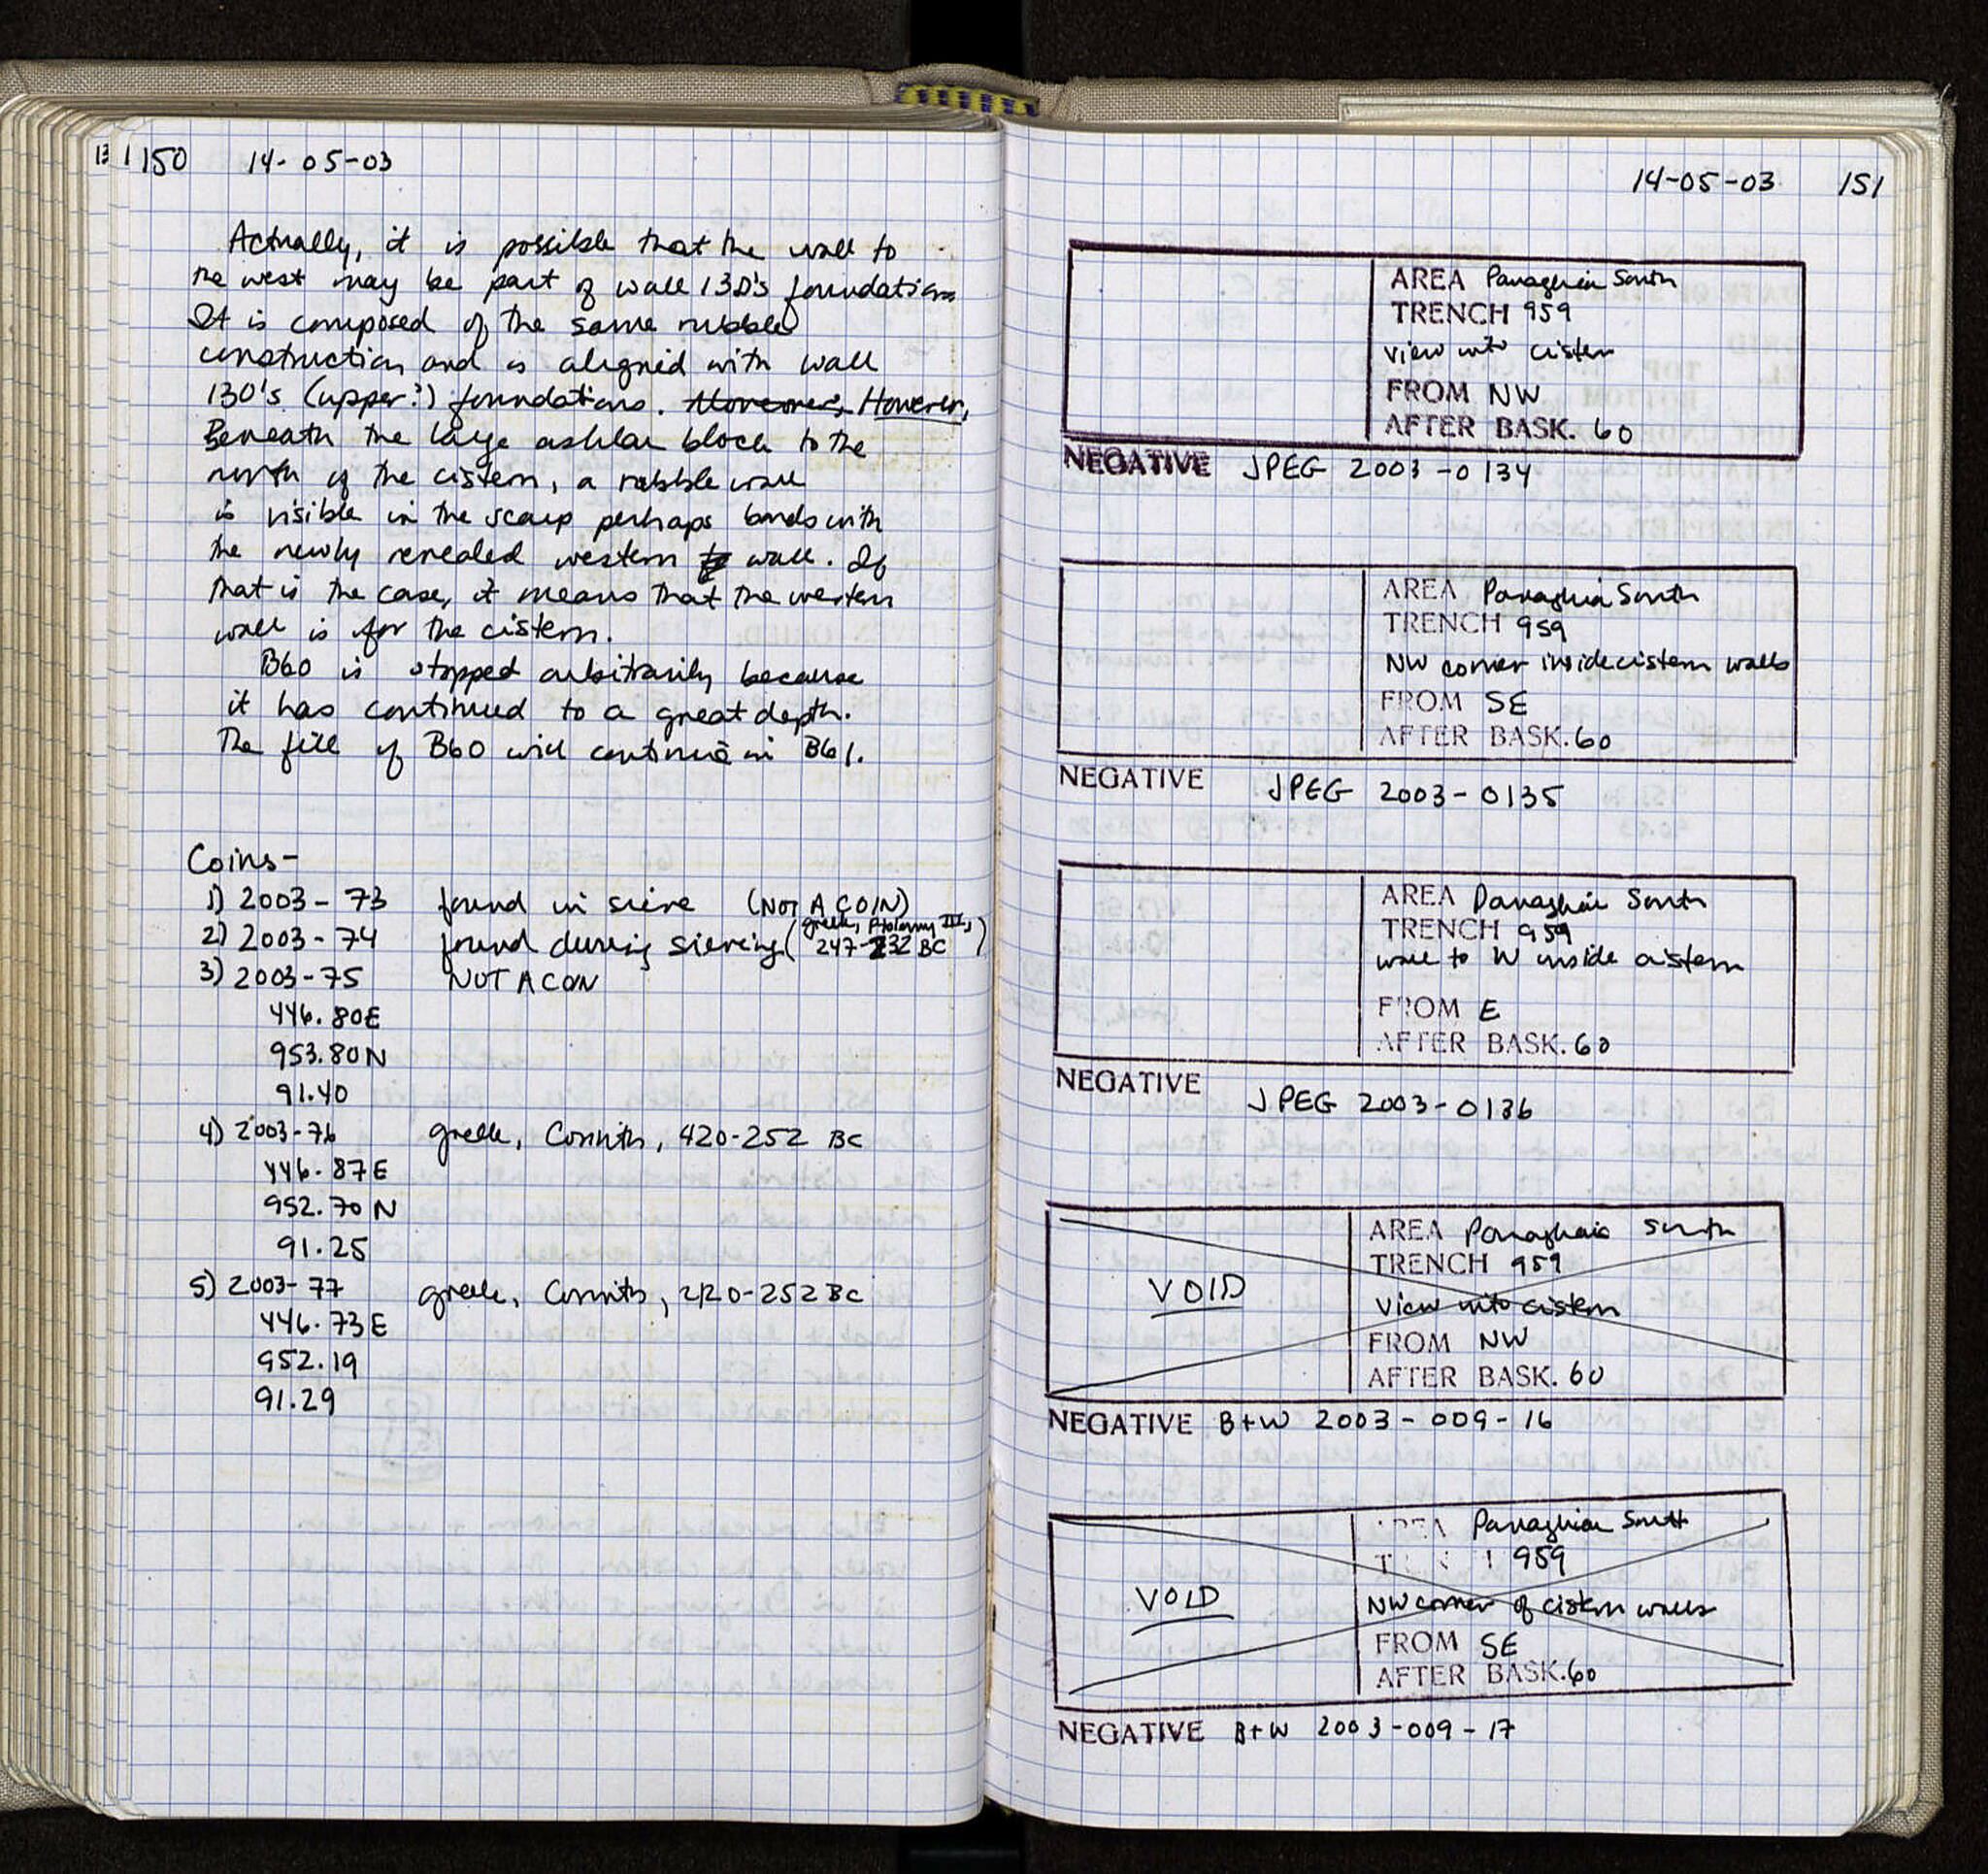 150 14-05-03
Actually, it is possible that the wall to
the west may be part of wall 130's foundations
It is composed of the same rubble
construction and is aligned with wall
130's (upper?) foundations. Moreover, However,
Beneath the large ashlar block to the
north of the cistern, a rubble wall
is visible in the scarp perhaps bonds with
the newly revealed western wall. If
that is the case, it means that the western
wall is for the cistern.
B60 is stopped arbitrarily because
it has continued to a great depth.
The fill of B60 will continue in B61.
Coins-
1) 2003-73 found in sieve (NOT A COIN)
2) 2003-74 found during sieving (greek, Ptolemy III, 247-232 BC)
3) 2003-75 NOT A CON
446.80E
953.80N
91.40
4) 2003-76 greek, Corinth, 420-252 BC
446.87E
952.70N
91.25
5) 2003-77 greek, Corinth, 420-252 BC
446.73E
952.19
91.29
14-05-03 151
AREA Panaghia South
TRENCH 959
view into cistern
FROM NW
AFTER BASK. 60
NEGATIVE JPEG 2003-0134
AREA Panaghia South
TRENCH 959
NW corner inside cistern walls
FROM SE
AFTER BASK. 60
NEGATIVE JPEG 2003-0135
AREA Panaghia South
TRENCH 959
wall to W inside cistern
FROM E
AFTER BASK. 60
NEGATIVE
JPEG 2003-0136
AREA Panaghia South
TRENCH 959
VOID
View into cistern
FROM NW
AFTER BASK. 60
NEGATIVE B+W 2003-009-16
AREA Panaghia South
TRENCH 959
VOID
NW corner of cistern walls
FROM SE
AFTER BASK. 60
NEGATIVE B+W 2003-009-17